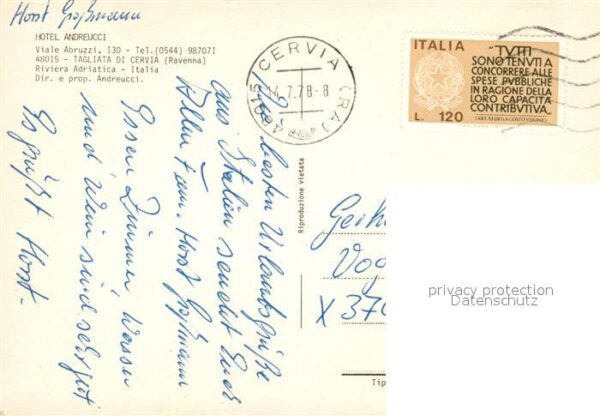 Horst Großmann
HOTEL ANDREUCCI
Viale Abruzzi, 130 - Tel.(0544) 987071
48015 - TAGLIATA DI CERVIA (Ravenna)
Riviera Adriatica - Italia
Dir. e prop. Andreucci.
Die besten Urlaubsgrüße
aus Italien sendet Euch
Allen Fam. Horst Großmann
Essen Zimmer, Wasser
und Wein sind sehr gut
Es grüßt Horst.
CERVIA (RA)
14.7.78-8
48015
ITALIA
TUTTI
SONO TENUTI A
CONCORRERE ALLE
SPESE PUBBLICHE
IN RAGIONE DELLA
LORO CAPACITÀ
CONTRIBUTIVA
(ART. 53 DELLA COSTITUZIONE)
L. 120
Riproduzione vietata
Vog
X 370
privacy protection
Datenschutz
Tip